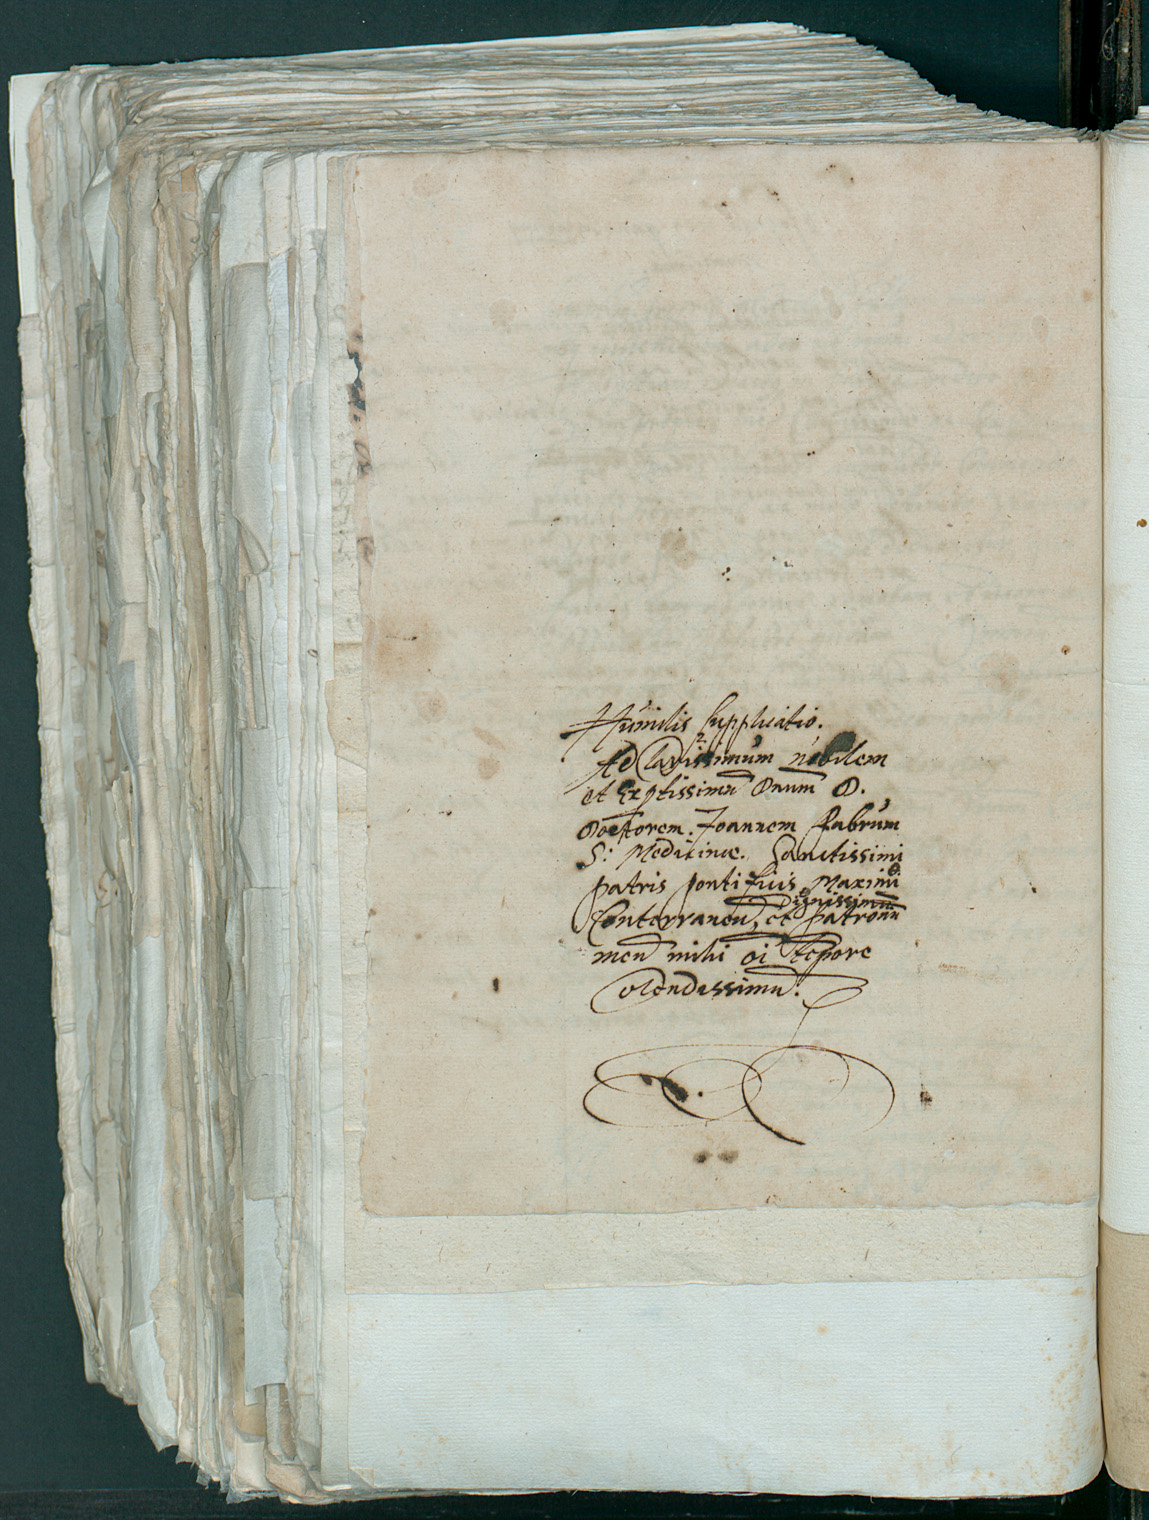 Humilis supplicatio.
Ad Clarissimum nobilem
et Exptissimū Dnum D.
Doctorem Joannem Fabrum
S: Medicinæ. Sanctissimi
patris pontificis Maximi
Dignissimū
Conterraneū, et patronū
meū mihi oī tēpore
Colendissimū.